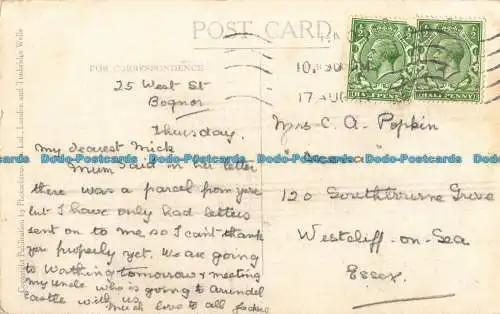 POST CARD
FOR CORRESPONDENCE
25 West St
Bognor
Thursday.
My dearest Mick
Mum said in her letter
there was a parcel from you
but I have only had letters
sent on to me so I can't thank
you properly yet. We are going
to Worthing tomorrow & meeting
my uncle who is going to Arundel
Castle with us.
Much love to all Jackie
10.30
17 AUG
HALFPENNY
HALFPENNY
Mrs C. A. Popkin
120 Southbourne Grove
Westcliff-on-Sea
Essex.
Copyright Publication by Photochrom Co. Ltd., London and Tunbridge Wells
Bodo-Postcards Bodo-Postcards Bodo-Postcards Bodo-Postcards